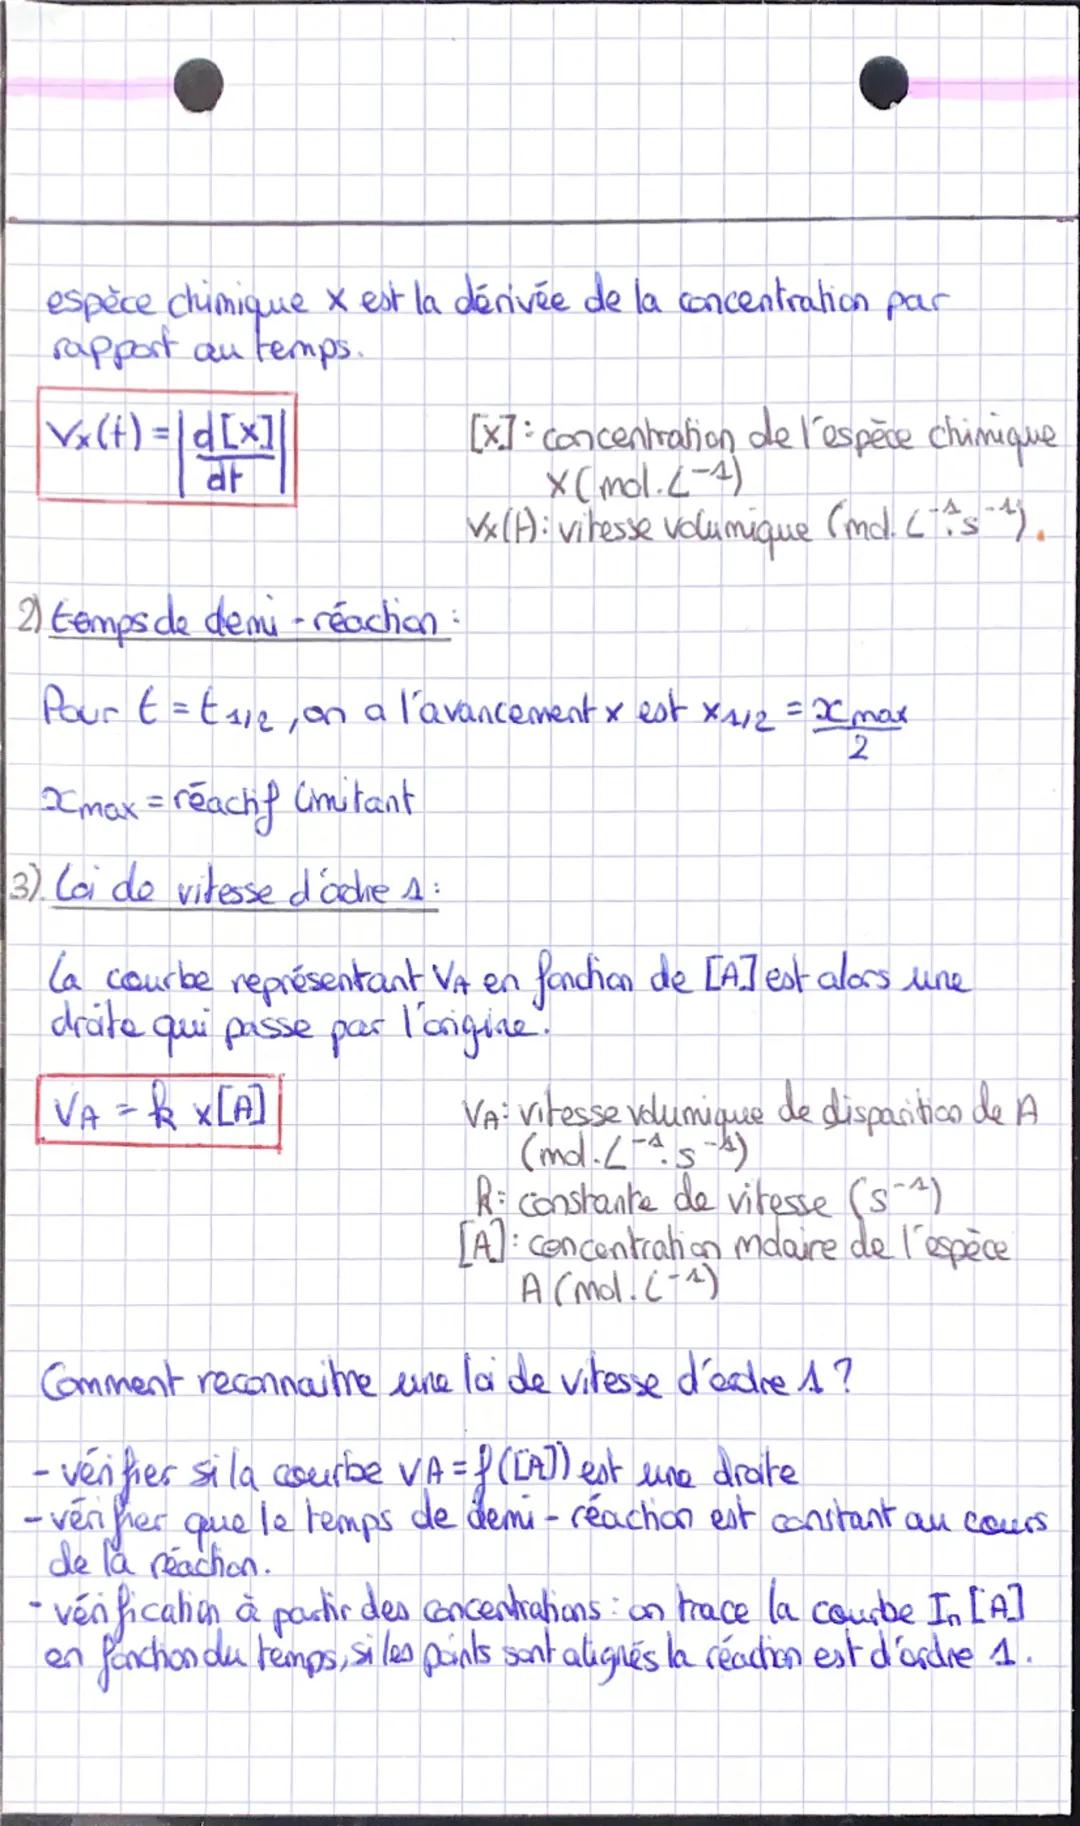 espèce chimique x est la dérivée de la concentration par
rapport au temps.
Vx(t) = |d[x]/dt|
[x]: concentration de l'espèce chimique
x (mol.L⁻¹)
Vx(t): vitesse volumique (mol.L⁻¹.s⁻¹).
2) temps de demi-réaction :
Pour t = t1/2, on a l'avancement x est x1/2 = xmax/2
xmax = réactif limitant
3). Loi de vitesse d'ordre 1 :
La courbe représentant VA en fonction de [A] est alors une
droite qui passe par l'origine.
VA = k x [A]
VA: vitesse volumique de disparition de A
(mol.L⁻¹.s⁻¹)
k: constante de vitesse (s⁻¹)
[A]: concentration molaire de l'espèce
A (mol.L⁻¹)
Comment reconnaitre une loi de vitesse d'ordre 1 ?
- vérifier si la courbe VA = f([A]) est une droite
- vérifier que le temps de demi-réaction est constant au cours
de la réaction.
- vérification à partir des concentrations : on trace la courbe ln [A]
en fonction du temps, si les points sont alignés la réaction est d'ordre 1.